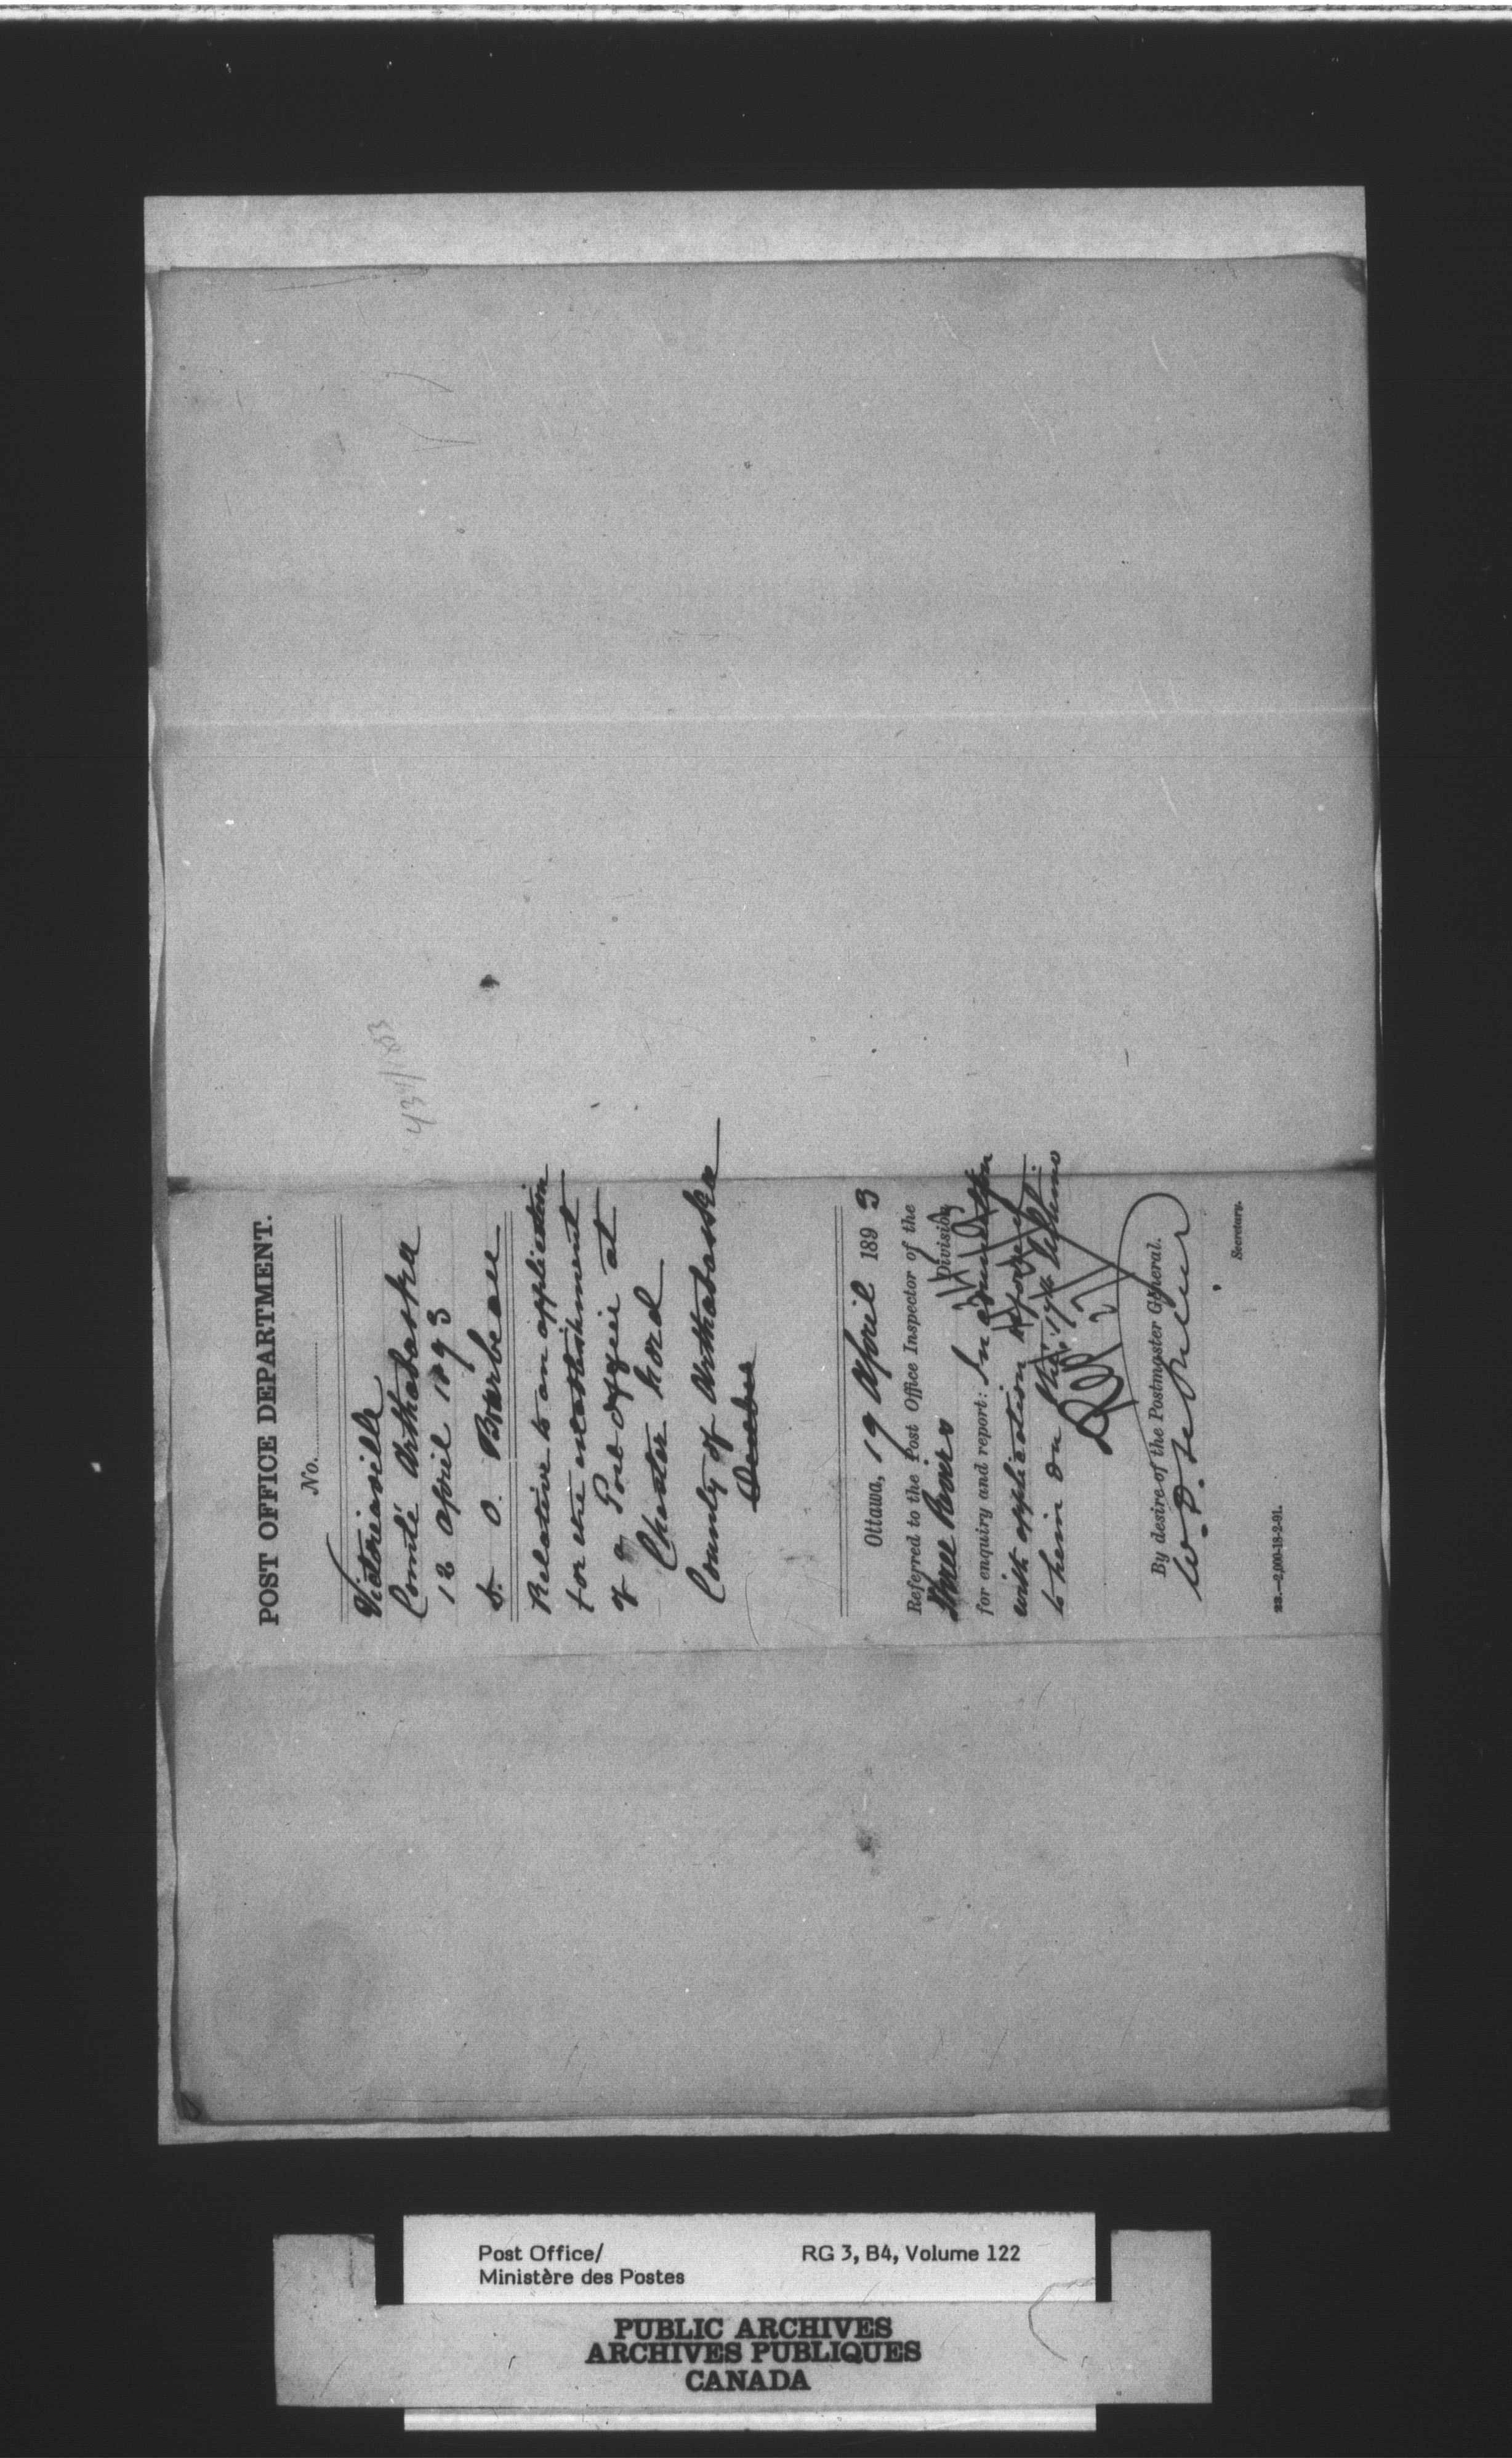 POST OFFICE DEPARTMENT.
No.
Victoriaville
Comté Arthabaska
12 April 1893
O. Barbeau
Relative to an application
for the establishment
of a Post Office at
Chester Nord
County of Arthabaska
Quebec
Ottawa, 19 April 1893
Referred to the Post Office Inspector of the
Three Rivers Division
for enquiry and report: In connection
with application referred
to him on the 17th
By desire of the Postmaster General.
Secretary.
23.—2,000-18-2-91.
Post Office/
Ministère des Postes
RG 3, B4, Volume 122
PUBLIC ARCHIVES
ARCHIVES PUBLIQUES
CANADA